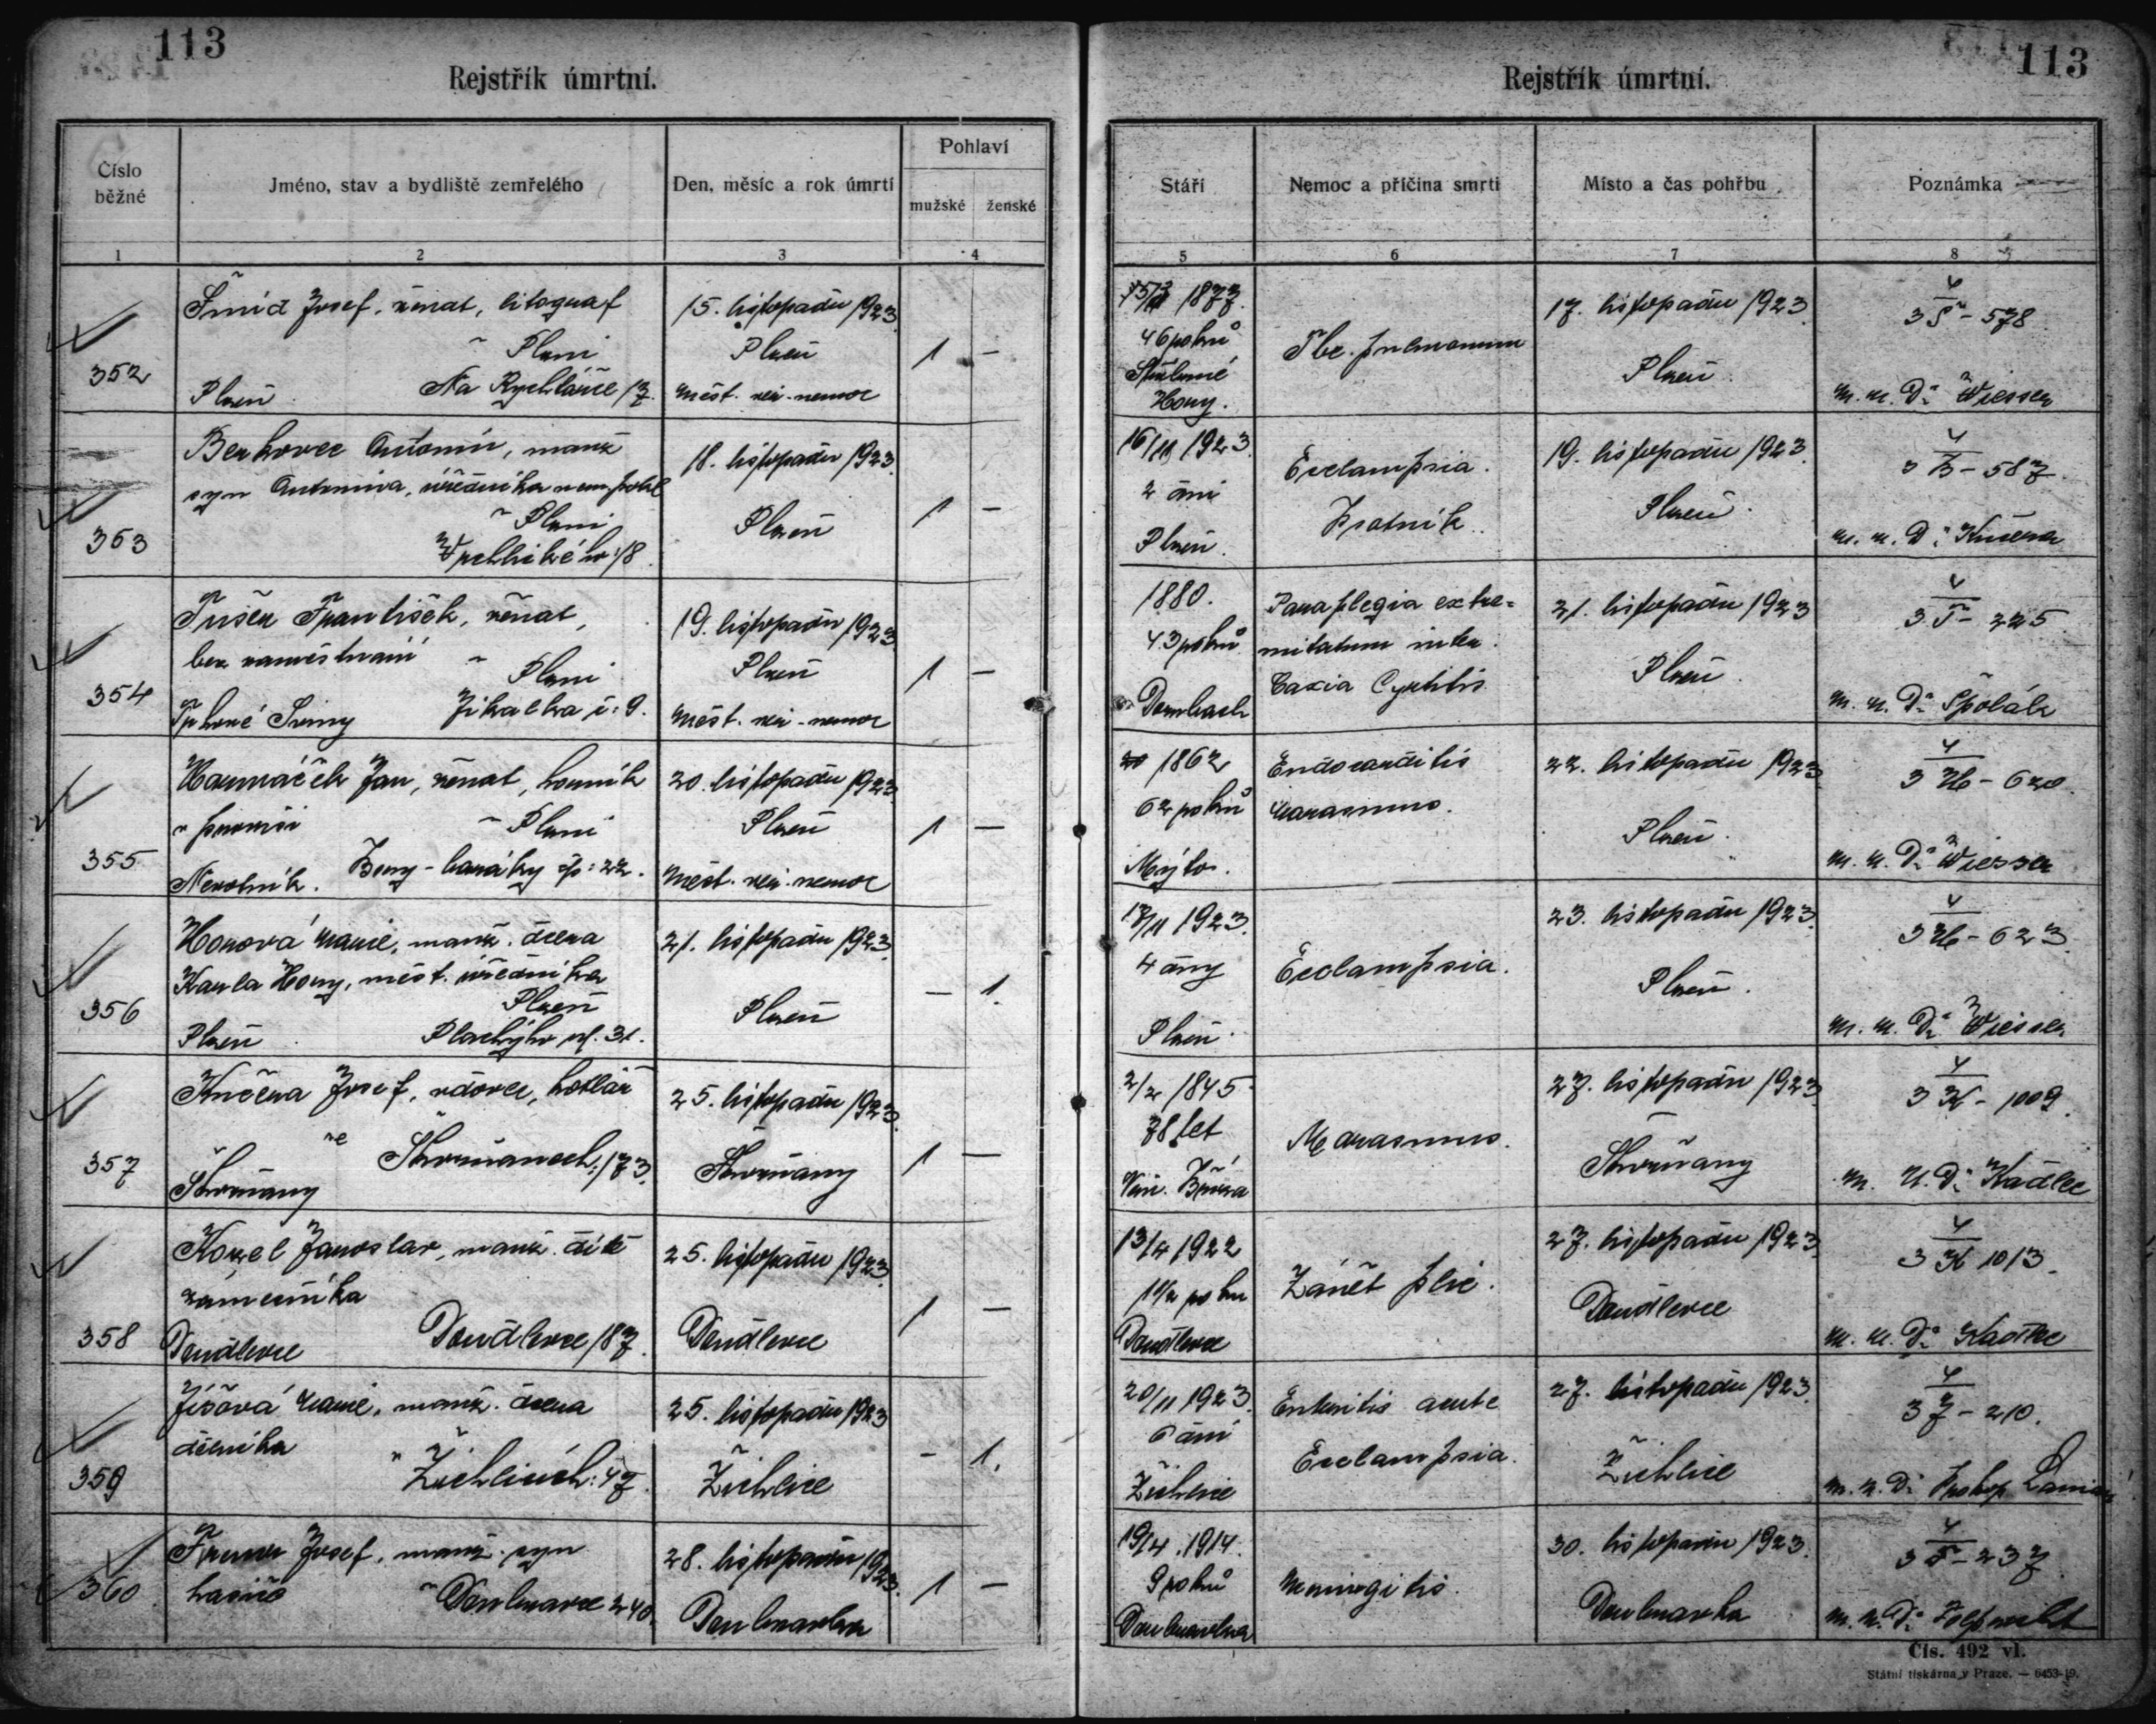 113
Rejstřík úmrtní.
Číslo běžné
Jméno, stav a bydliště zemřelého
Den, měsíc a rok úmrtí
Pohlaví
mužské ženské
1 2 3 4
352
Šmíd Josef, ženat, litograf
v Plzni
Plzeň Na Rychtářce 17.
15. listopadu 1923.
Plzeň
měst. nemoc
1 –
353
Berkovec Antonín, manž
syn Antonína, úředníka
v Plzni
Vrchlického 18.
18. listopadu 1923.
Plzeň
1 –
354
Tušer František, ženat,
bez zaměstnání v Plzni
Jikalka č: 9.
19. listopadu 1923
Plzeň
měst. nemoc
1 –
355
Jan, ženat, horník
v Plzni
22.
20. listopadu 1923.
Plzeň
měst. nemoc
1 –
356
Honová Marie, manž. dcera
Karla Hony, měst. úředníka
Plzeň
Plzeň Plachýho ul. 31.
21. listopadu 1923.
Plzeň
– 1.
357
Kučera Josef, vdovec, kotlář
ve Skvrňanech: 173.
Skvrňany
25. listopadu 1923.
Skvrňany
1 –
358
Kozel Jaroslav, manž. dítě
zámečníka
Doudlevce Doudlevce 187.
25. listopadu 1923.
Doudlevce
1 –
359
Jíšová Marie, manž. dcera
dělníka
v Žichlicích: 47.
25. listopadu 1923
Žichlice
– 1.
360
Josef, manž. syn
hasiče v Doubravce 240.
28. listopadu 1923.
Doubravka
1 –
113
Rejstřík úmrtní.
Stáří
Nemoc a příčina smrti
Místo a čas pohřbu
Poznámka
5 6 7 8
1877.
46 roků
Hory.
Tbc. pulmonum
17. listopadu 1923.
Plzeň.
4
3 Š - 578
M. U. Dr Wiesser
16/11 1923.
2 dni
Plzeň.
Eclampsia.
Psotník.
19. listopadu 1923.
Plzeň.
4
3 B - 587.
M. U. Dr Kučera
1880.
43 roků
Dombach
Paraplegia extre=
mitatum infer.
21. listopadu 1923
Plzeň.
4
3 T - 225
M. U. Dr Špolák
1862
62 roků
Mýto.
Endocarditis
marasmus.
22. listopadu 1923
Plzeň.
4
3 H - 620.
M. U. Dr Wiesser
17/11 1923.
4 dny
Plzeň.
Eclampsia.
23. listopadu 1923.
Plzeň.
4
3 H - 623
M. U. Dr Wiesser
2/2 1845
78 let
Marasmus.
27. listopadu 1923.
Skvrňany
4
3 K - 1009.
M. U. Dr Kadlec
13/4 1922
1 1/2 roku
Doudlevce
Zánět plic.
27. listopadu 1923
Doudlevce
4
3 K 1013.
M. U. Dr Kadlec
20/11 1923.
6 dní
Žichlice
Enteritis acute
Eclampsia.
27. listopadu 1923.
Žichlice
4
3 J - 210.
M. U. Dr Prokop
19/4. 1914.
9 roků
Doubravka
Meningitis.
30. listopadu 1923.
Doubravka
4
3 F - 237
M. U. Dr
Čís. 492 vl.
Státní tiskárna v Praze. — 6453-19.